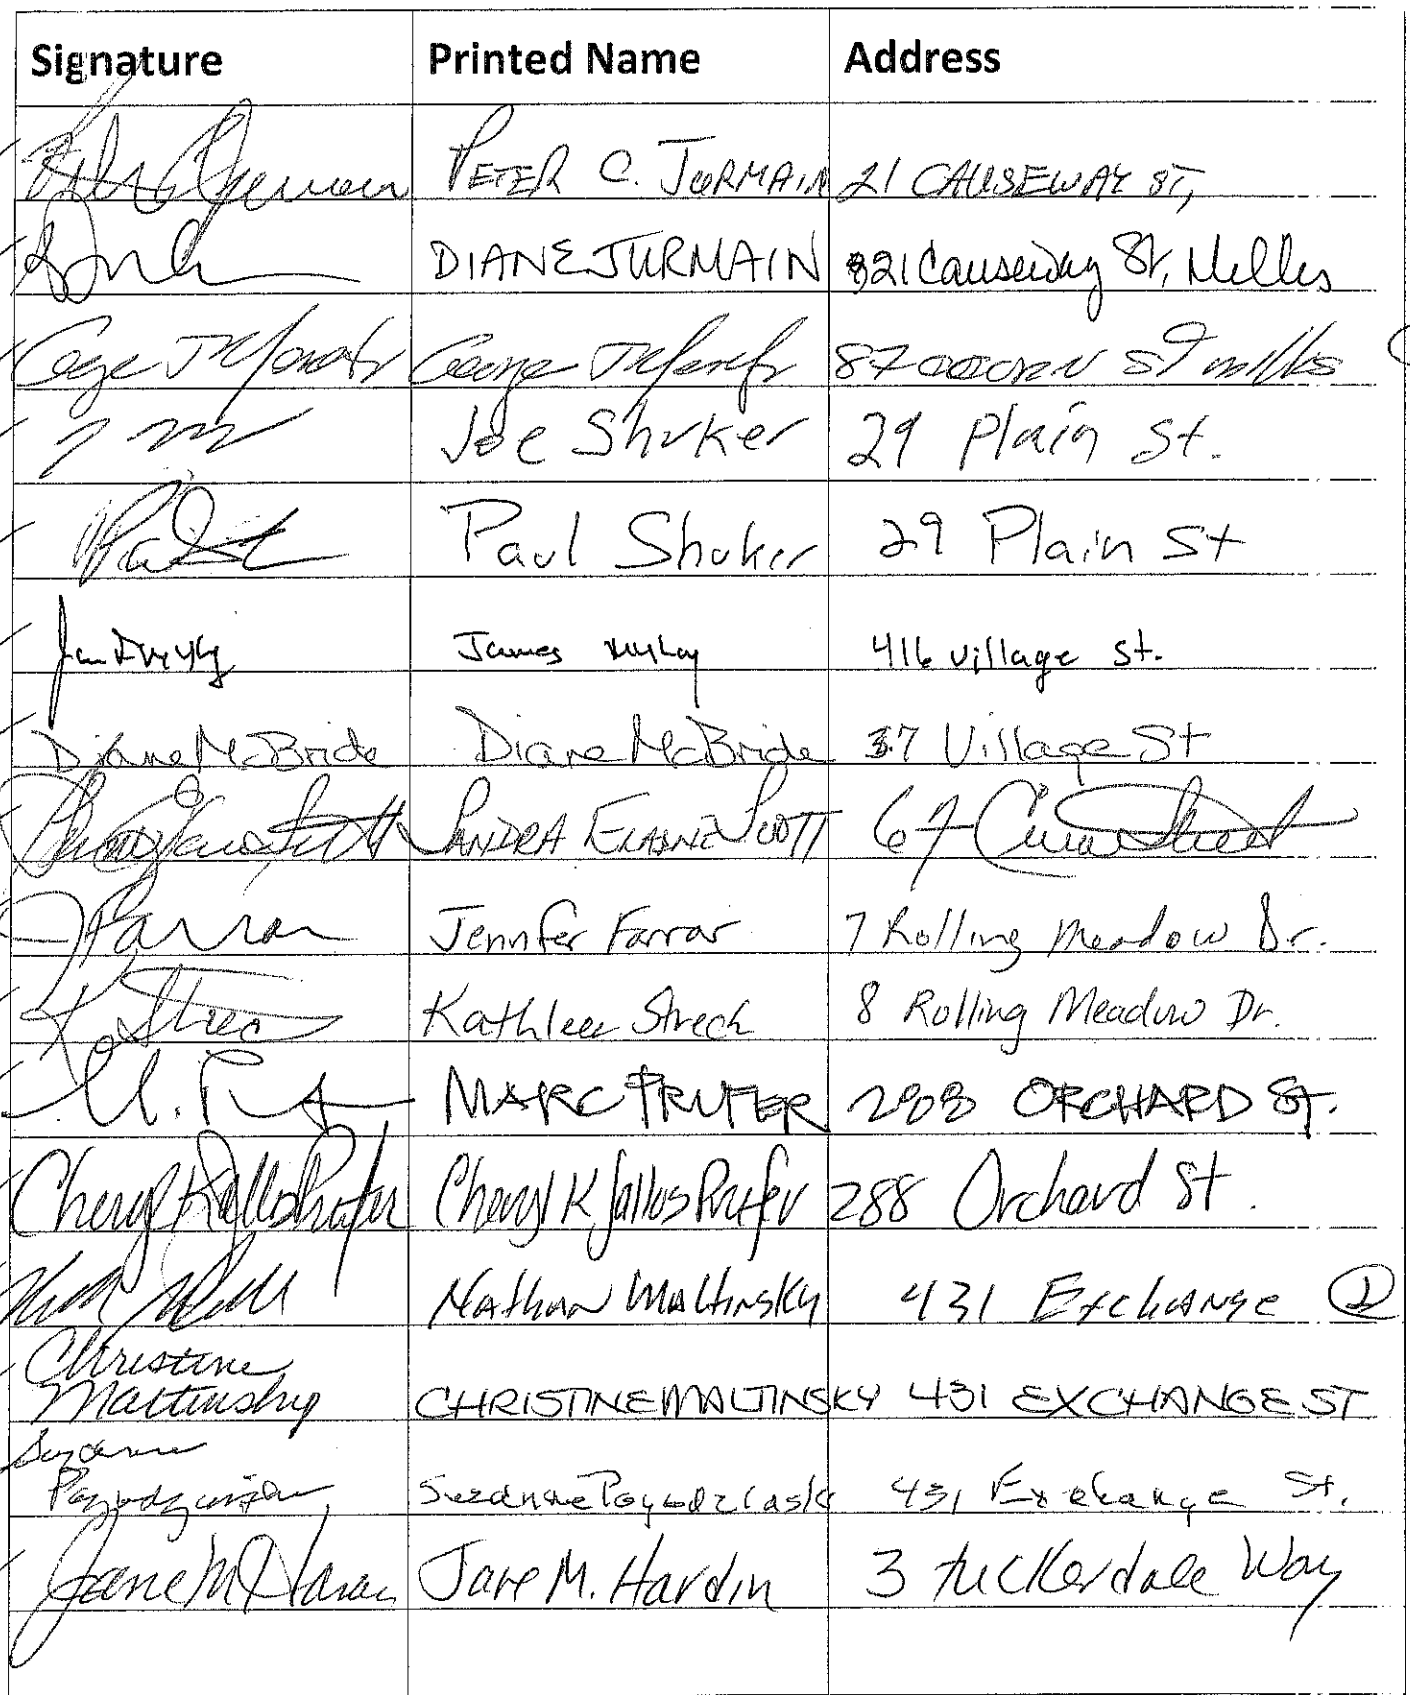 Signature Printed Name Address
PETER C. JURMAIN 21 CAUSEWAY ST,
DIANE JURMAIN 21 Causeway St, Millis
George J 87 St millis
Joe Shuker 29 Plain St.
Paul Shuker 29 Plain St
James 416 Village St.
Diane McBride Diane McBride 37 Village St
SANDRA ELAINE SCOTT 67 Street
J Farrar Jennifer Farrar 7 Rolling Meadow Dr.
K Strec Kathleen Streck 8 Rolling Meadow Dr.
M. MARC PRUFER 288 ORCHARD ST.
Cheryl K Jallos Prufer Cheryl K Jallos Prufer 288 Orchard St.
Nathan Maltinsky 431 Exchange
Christine
Maltinsky CHRISTINE MALTINSKY 431 EXCHANGE ST
Suzanne
Suzanne 431 Exchange St.
Jane M Hardin Jane M. Hardin 3 Tuckerdale Way